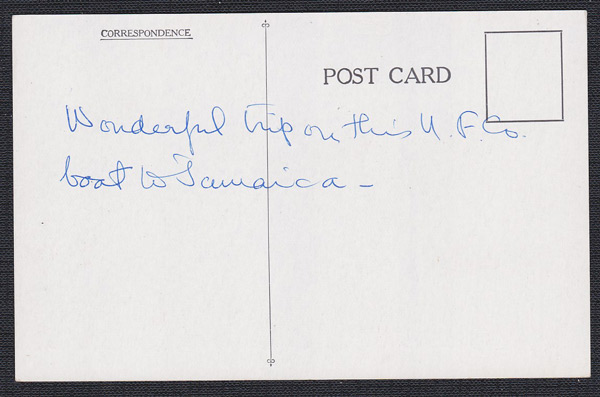 CORRESPONDENCE
POST CARD
Wonderful trip on this U.F.Co.
boat to Jamaica -